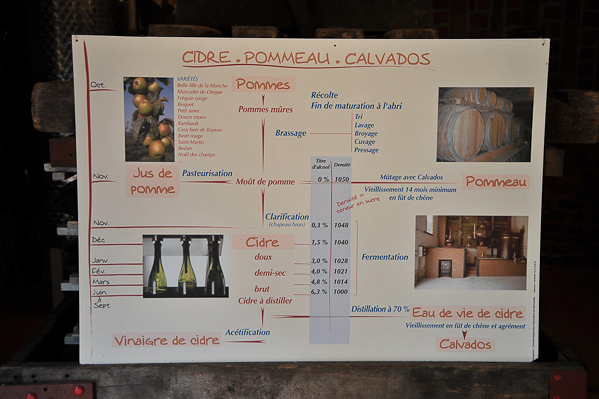 CIDRE . POMMEAU . CALVADOS
Oct.
VARIÉTÉS
Belle fille de la Manche
Muscadet de Dieppe
Fréquin rouge
Bisquet
Petit amer
Douce moen
Rambault
Gros bois de Bayeux
Binet rouge
Saint-Martin
Bedan
Noël des champs
Pommes
Pommes mûres
Récolte
Fin de maturation à l'abri
Brassage
Tri
Lavage
Broyage
Cuvage
Pressage
Titre d'alcool
Densité
Nov.
Jus de pomme
Pasteurisation
Moût de pomme
0 % 1050
Mûtage avec Calvados
Vieillissement 14 mois minimum
en fût de chêne
Pommeau
Densité =
teneur en sucre
Nov.
Clarification
(chapeau brun)
0,3 % 1048
Déc.
Cidre
1,5 % 1040
Janv.
doux
3,0 % 1028
Fermentation
Fév.
demi-sec
4,0 % 1021
Mars
4,8 % 1014
Juin
à
Sept
brut
6,3 % 1000
Cidre à distiller
Distillation à 70 %
Eau de vie de cidre
Vieillissement en fût de chêne et agrément
Vinaigre de cidre
Acétification
Calvados